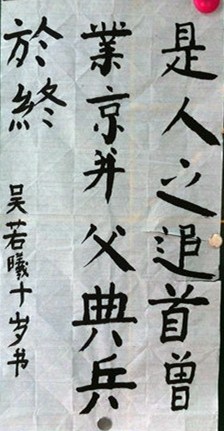 是人之追首曽
業京并父典兵
於終
吴若曦十岁书